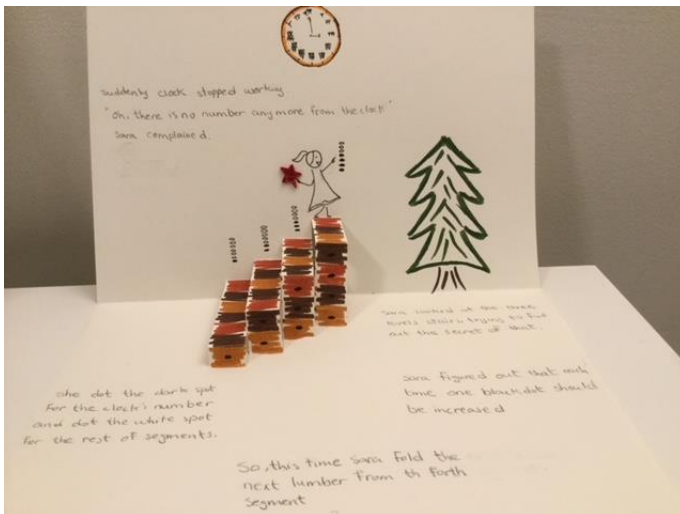 suddenly clock stopped working
"oh, there is no number any more from the clock"
Sara complained.
Sara looked at the three
levels stairs trying to find
out the secret of that.
Sara figured out that each
time one black dot should
be increased
She dot the dark spot
For the clock's number
and dot the white spot
for the rest of segments.
So, this time Sara fold the
next lumber from th forth
segment